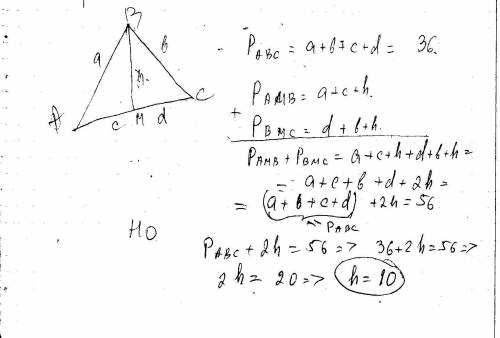 B
a
b
h
A
c M d C
P_ABC = a+b+c+d = 36.
P_AMB = a+c+h.
+
P_BMC = d+b+h.
P_AMB + P_BMC = a+c+h+d+b+h =
= a+c+b+d+2h =
= (a+b+c+d) +2h = 56
P_ABC
НО
P_ABC + 2h = 56 => 36+2h=56 =>
2h = 20 => h=10